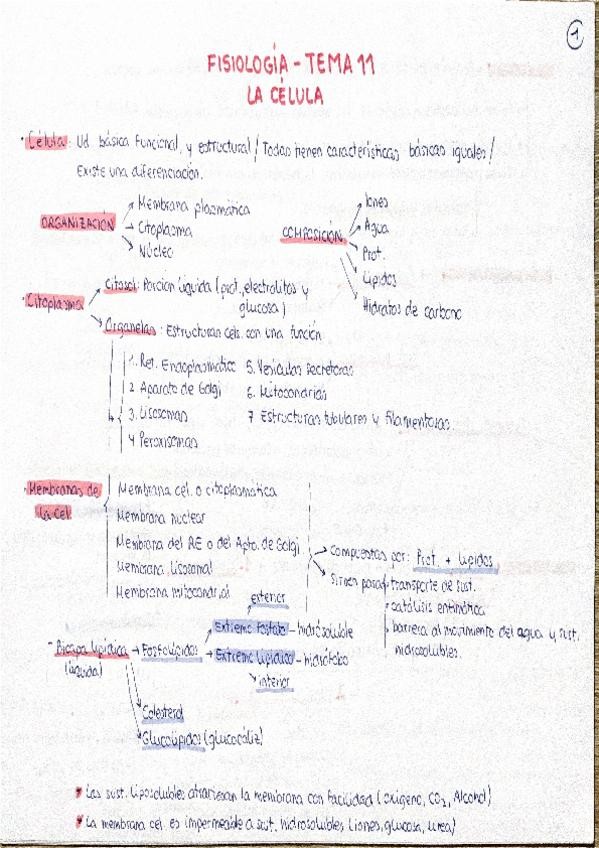 1
FISIOLOGÍA - TEMA 11
LA CÉLULA
· Célula: Ud. básica funcional y estructural / Todas tienen características básicas iguales /
Existe una diferenciación.
ORGANIZACIÓN → Membrana plasmática
→ Citoplasma
→ Núcleo
COMPOSICIÓN → Iones
→ Agua
→ Prot.
→ Lípidos
→ Hidratos de carbono
· Citoplasma → Citosol: Porción líquida (prot., electrolitos y
glucosa)
→ Organelas: Estructuras cels. con una función
1. Ret. Endoplasmático
2. Aparato de Golgi
3. Lisosomas
4. Peroxisomas
5. Vesículas secretoras
6. Mitocondrias
7. Estructuras tubulares y filamentosas
· Membranas de
la cel.
Membrana cel. o citoplasmática
Membrana nuclear
Membrana del RE o del Apto. de Golgi
Membrana lisosomal
Membrana mitocondrial
→ Compuestas por: Prot. + Lípidos
→ Sirven para: · transporte de sust.
· catálisis enzimática
· barrera al movimiento del agua y sust.
hidrosolubles.
- Bicapa lipídica
(líquida)
→ Fosfolípidos
→ Extremo fosfato - hidrosoluble
exterior
→ Extremo lipídico - hidrófobo
interior
Colesterol
Glucolípidos (glucocáliz)
* Las sust. liposolubles atraviesan la membrana con facilidad (oxígeno, CO₂, Alcohol)
* La membrana cel. es impermeable a sust. hidrosolubles (iones, glucosa, urea)